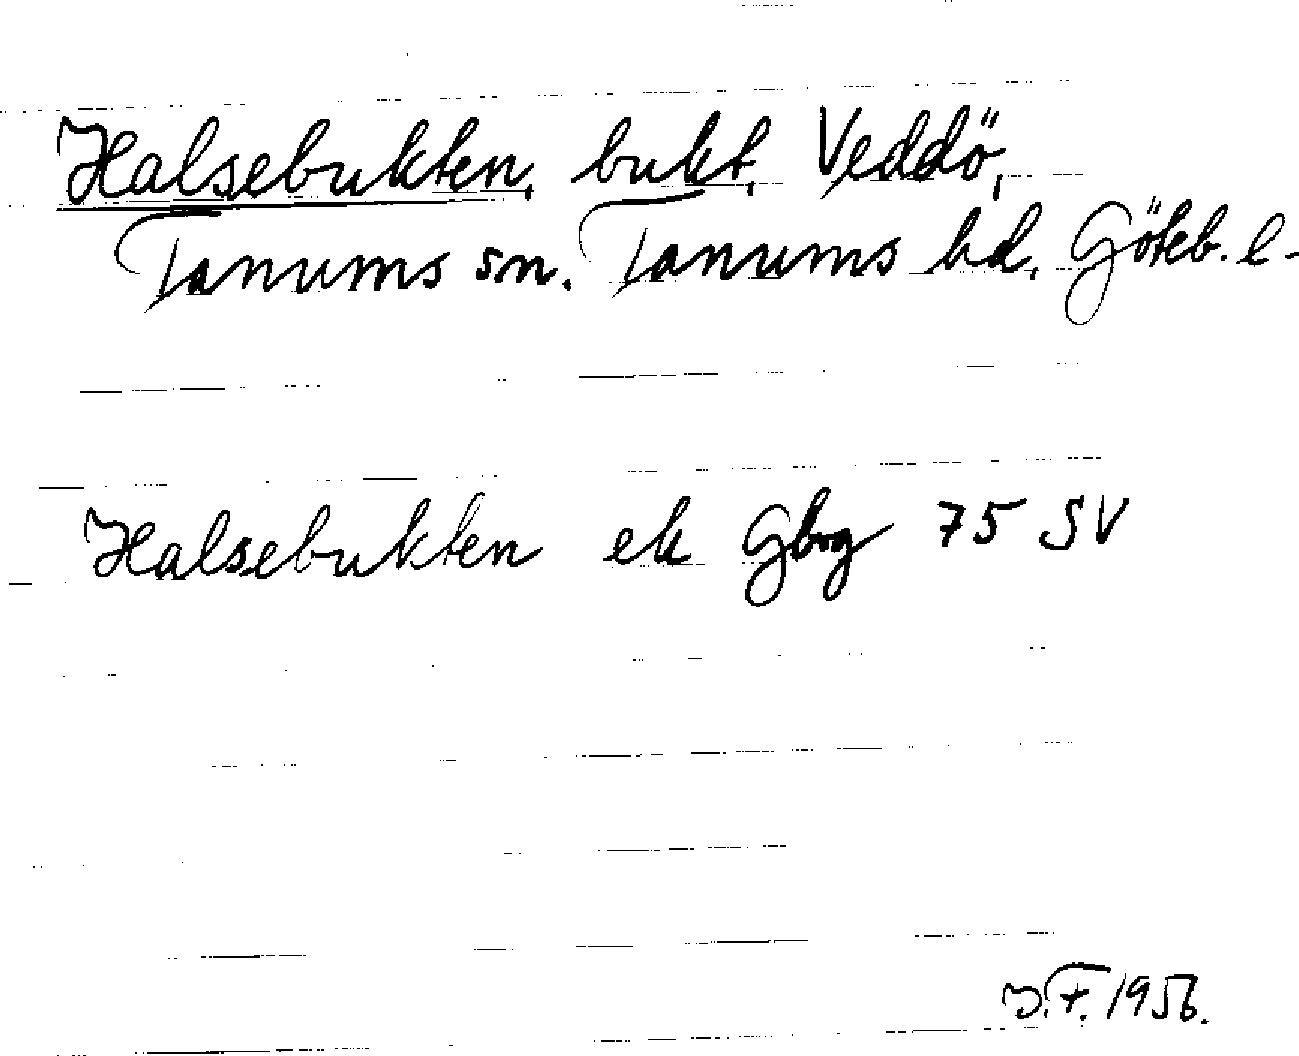 Halsebukten, bukt, Veddö,
Tanums sn. Tanums hd. Göteb. l.
Halsebukten ek Gbg 75 SV
J.F. 1956.